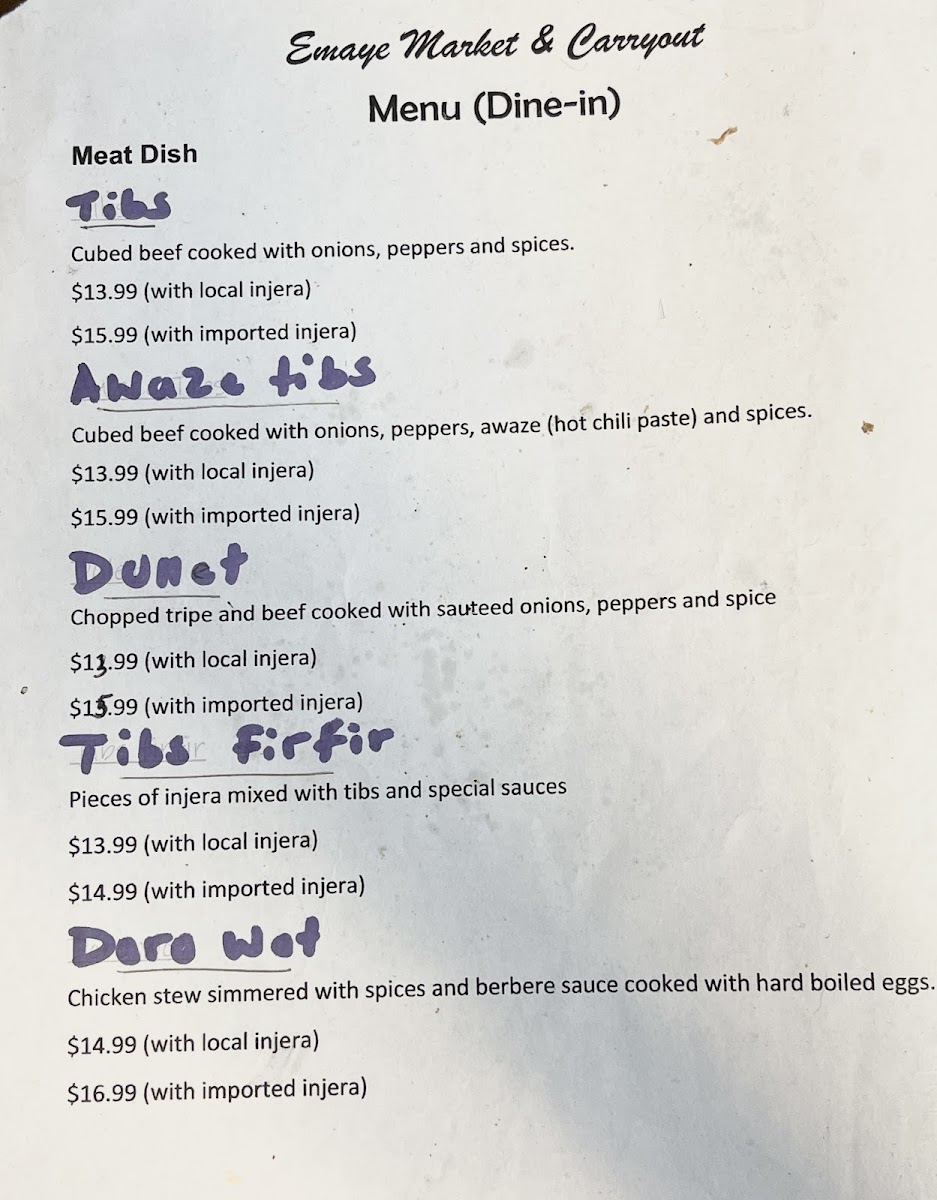 Emaye Market & Carryout
Menu (Dine-in)
Meat Dish
Tibs
Cubed beef cooked with onions, peppers and spices.
$13.99 (with local injera)
$15.99 (with imported injera)
Awaze tibs
Cubed beef cooked with onions, peppers, awaze (hot chili paste) and spices.
$13.99 (with local injera)
$15.99 (with imported injera)
Dunet
Chopped tripe and beef cooked with sauteed onions, peppers and spice
$13.99 (with local injera)
$15.99 (with imported injera)
Tibs firfir
Pieces of injera mixed with tibs and special sauces
$13.99 (with local injera)
$14.99 (with imported injera)
Doro Wot
Chicken stew simmered with spices and berbere sauce cooked with hard boiled eggs.
$14.99 (with local injera)
$16.99 (with imported injera)